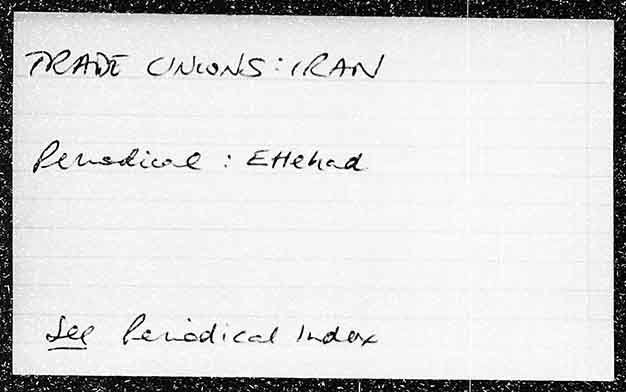 TRADE UNIONS: IRAN
Periodical: Ettehad
See Periodical Index